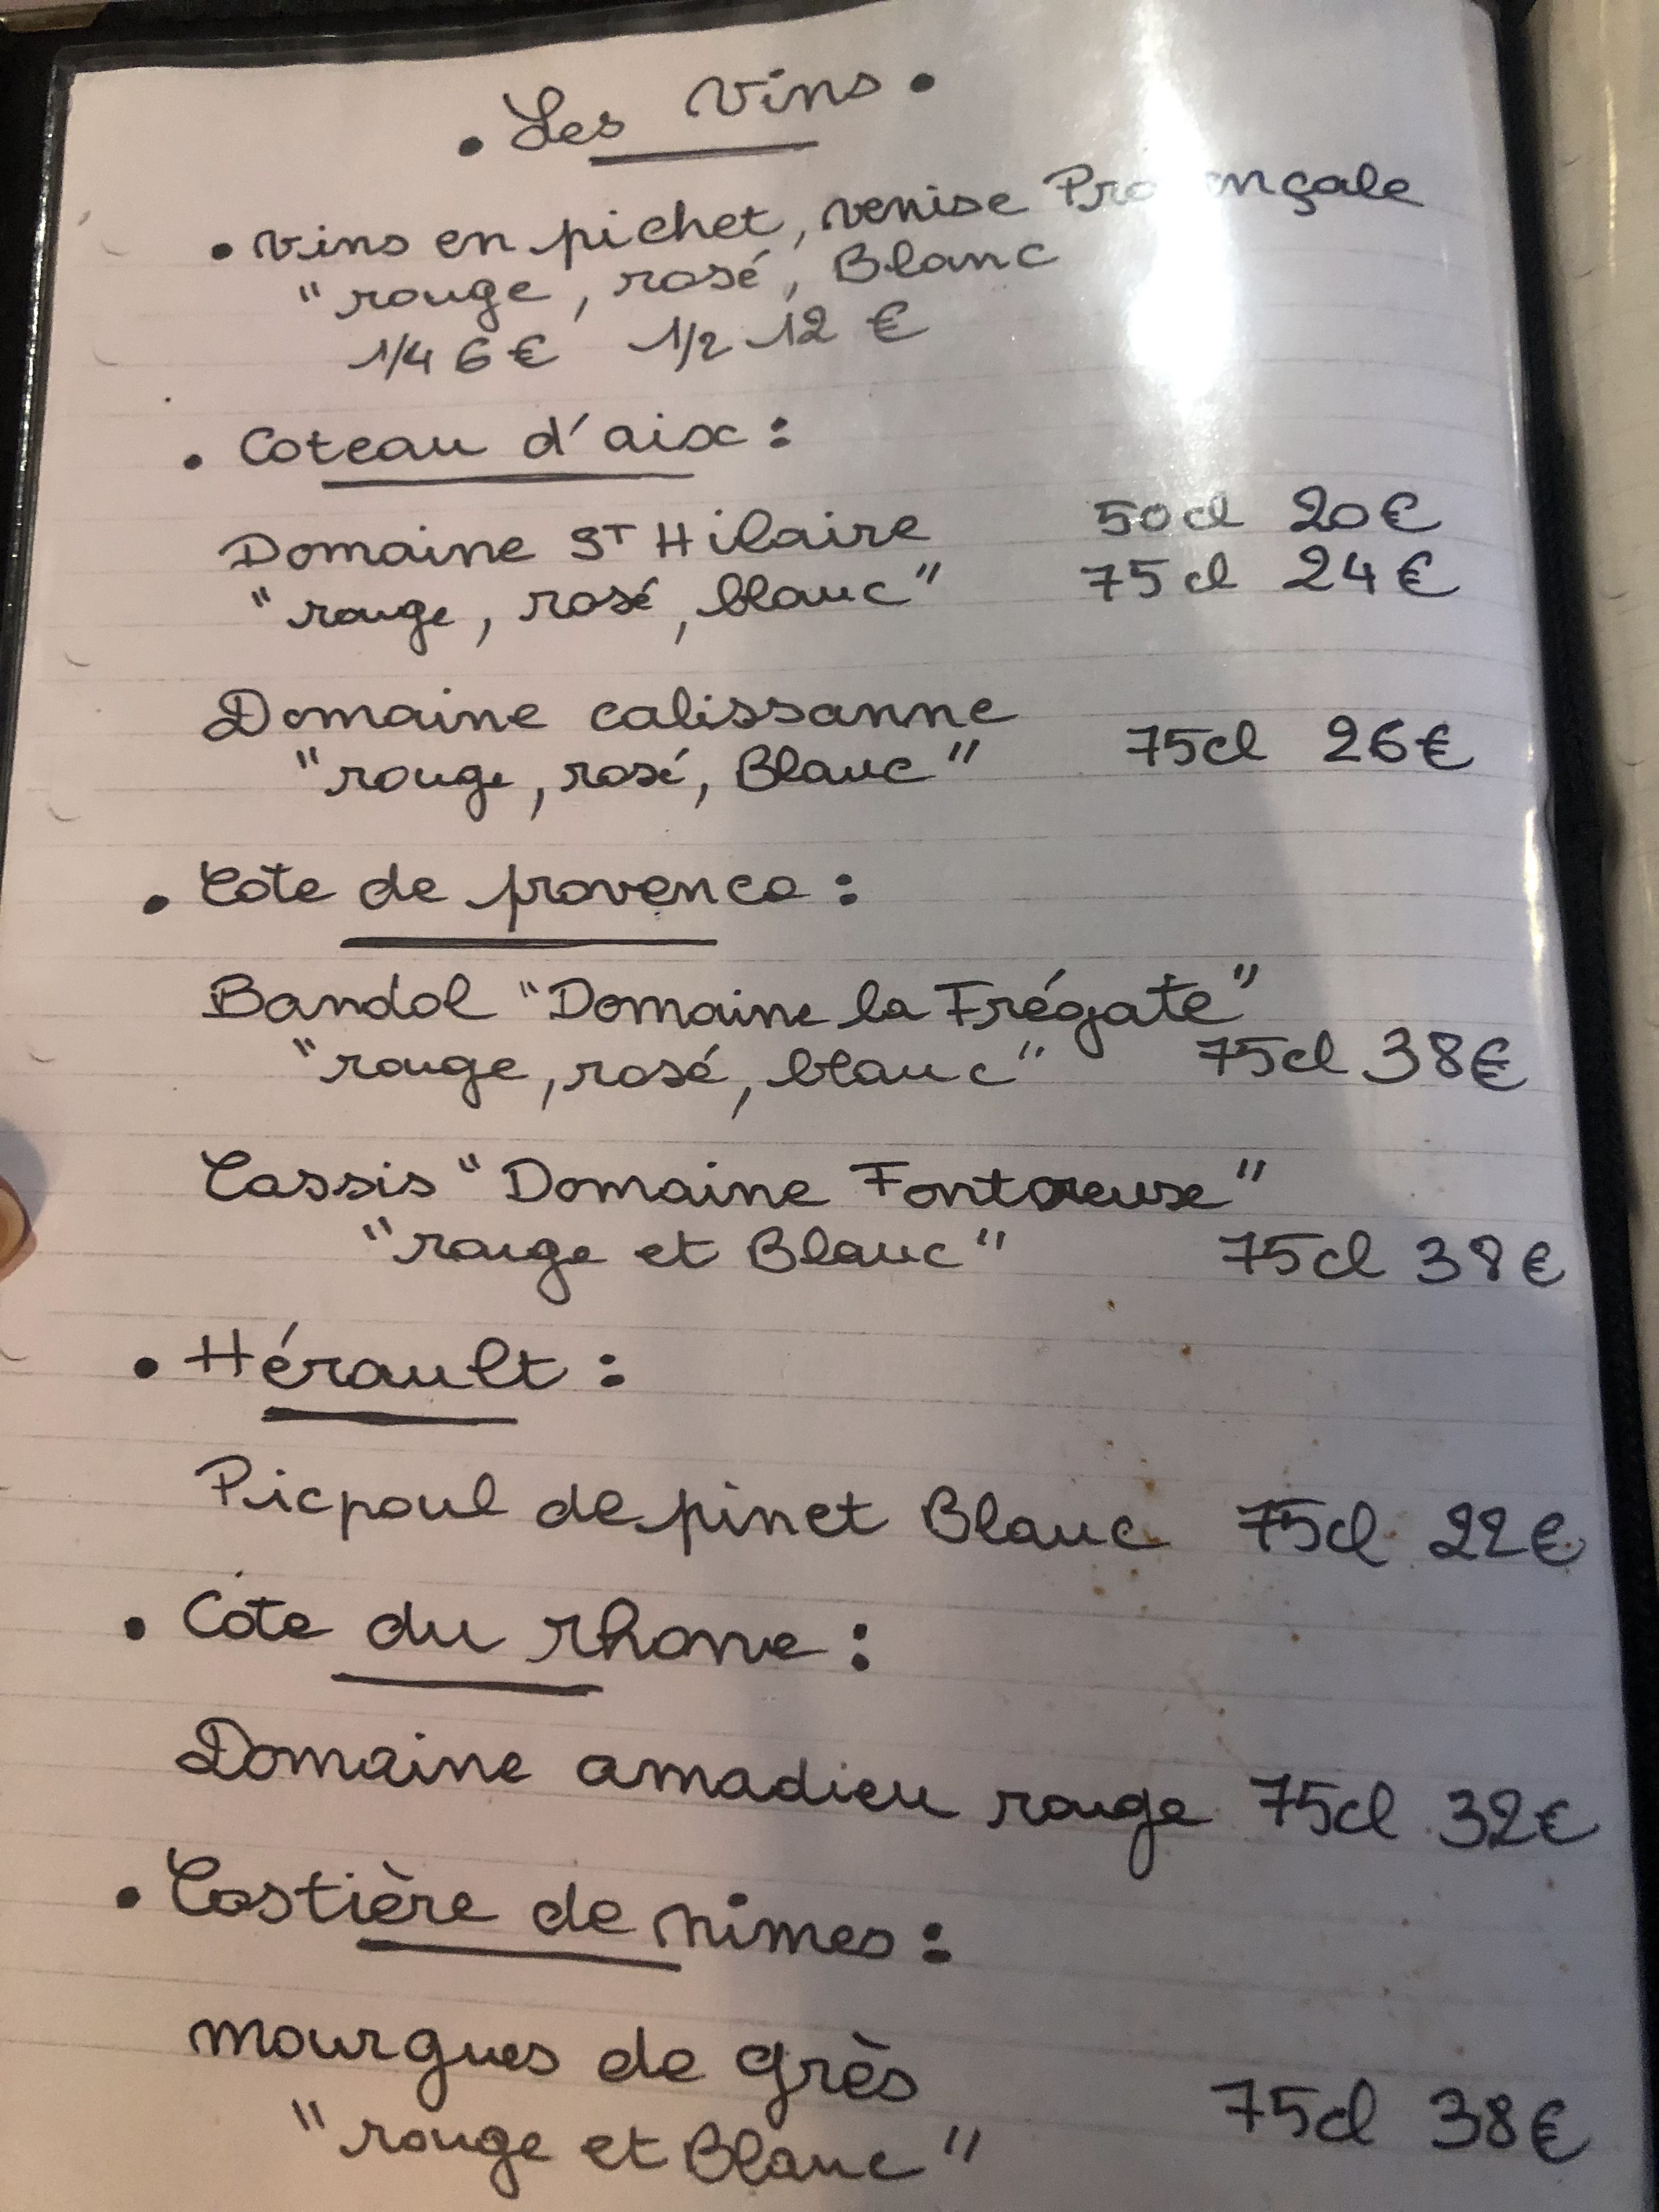 . Les Vins .
. vins en pichet, venise Provençale
"rouge, rosé, Blanc
1/4 6€ 1/2 12 €
. Coteau d'aix :
Domaine ST Hilaire 50cl 20€
"rouge, rosé, blanc" 75cl 24€
Domaine calissanne
"rouge, rosé, Blanc" 75cl 26€
. Côte de provence :
Bandol "Domaine la Frégate"
"rouge, rosé, blanc" 75cl 38€
Cassis "Domaine Fontcreuse"
"rouge et Blanc" 75cl 38€
. Hérault :
Picpoul de pinet Blanc 75cl 22€
. Côte du rhone :
Domaine amadieu rouge 75cl 32€
. Costière de nimes :
mourgues de grès
"rouge et Blanc" 75cl 38€